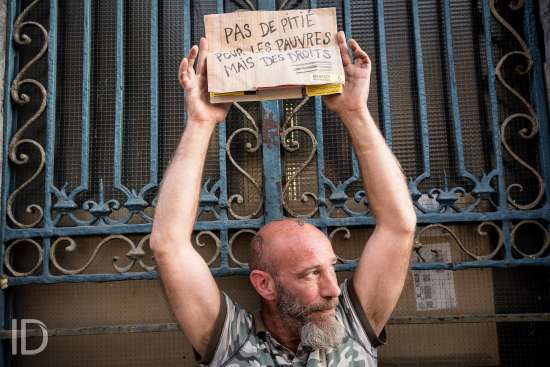 PAS DE PITIÉ
POUR LES PAUVRES
MAIS DES DROITS
ID